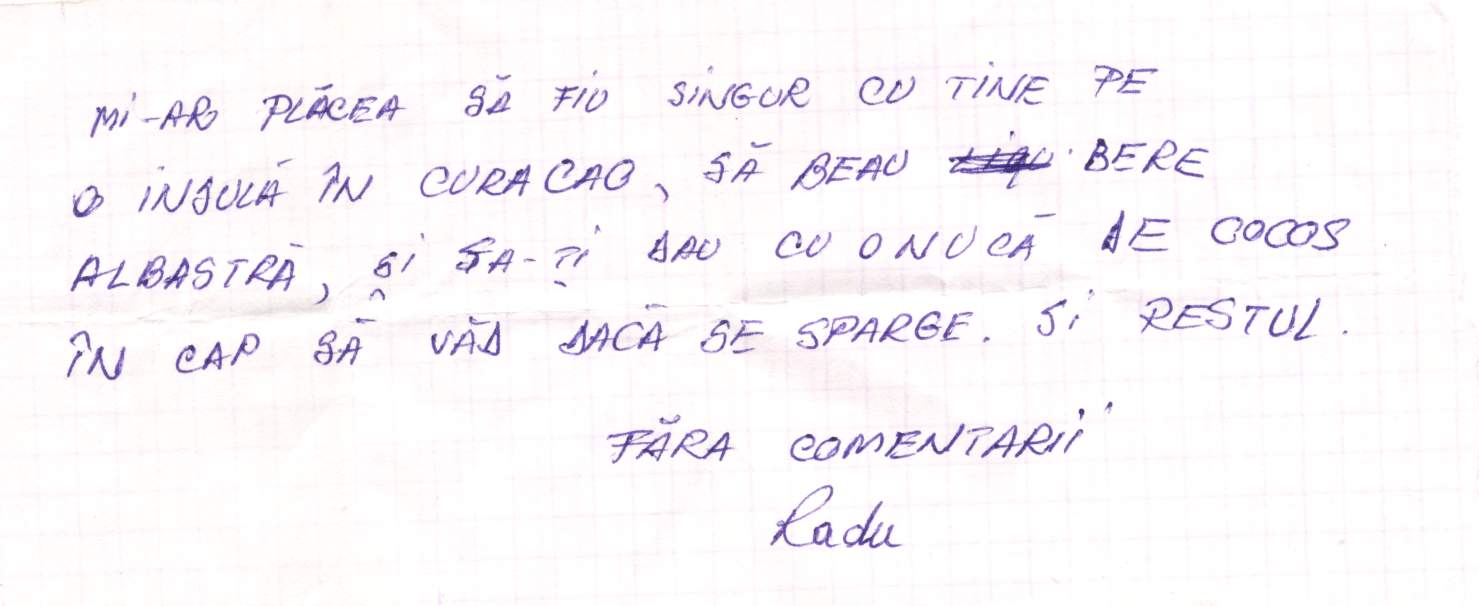 Mi-AR PLĂCEA SĂ FIU SiNGUR CU TiNE PE
O iNSULĂ ÎN CURACAO, SĂ BEAU BERE
ALBASTRĂ, Și SA-Ți DAU CU O NUCĂ DE COCOS
ÎN CAP SĂ VĂD DACĂ SE SPARGE. Si RESTUL.
FĂRA COMENTARii
Radu